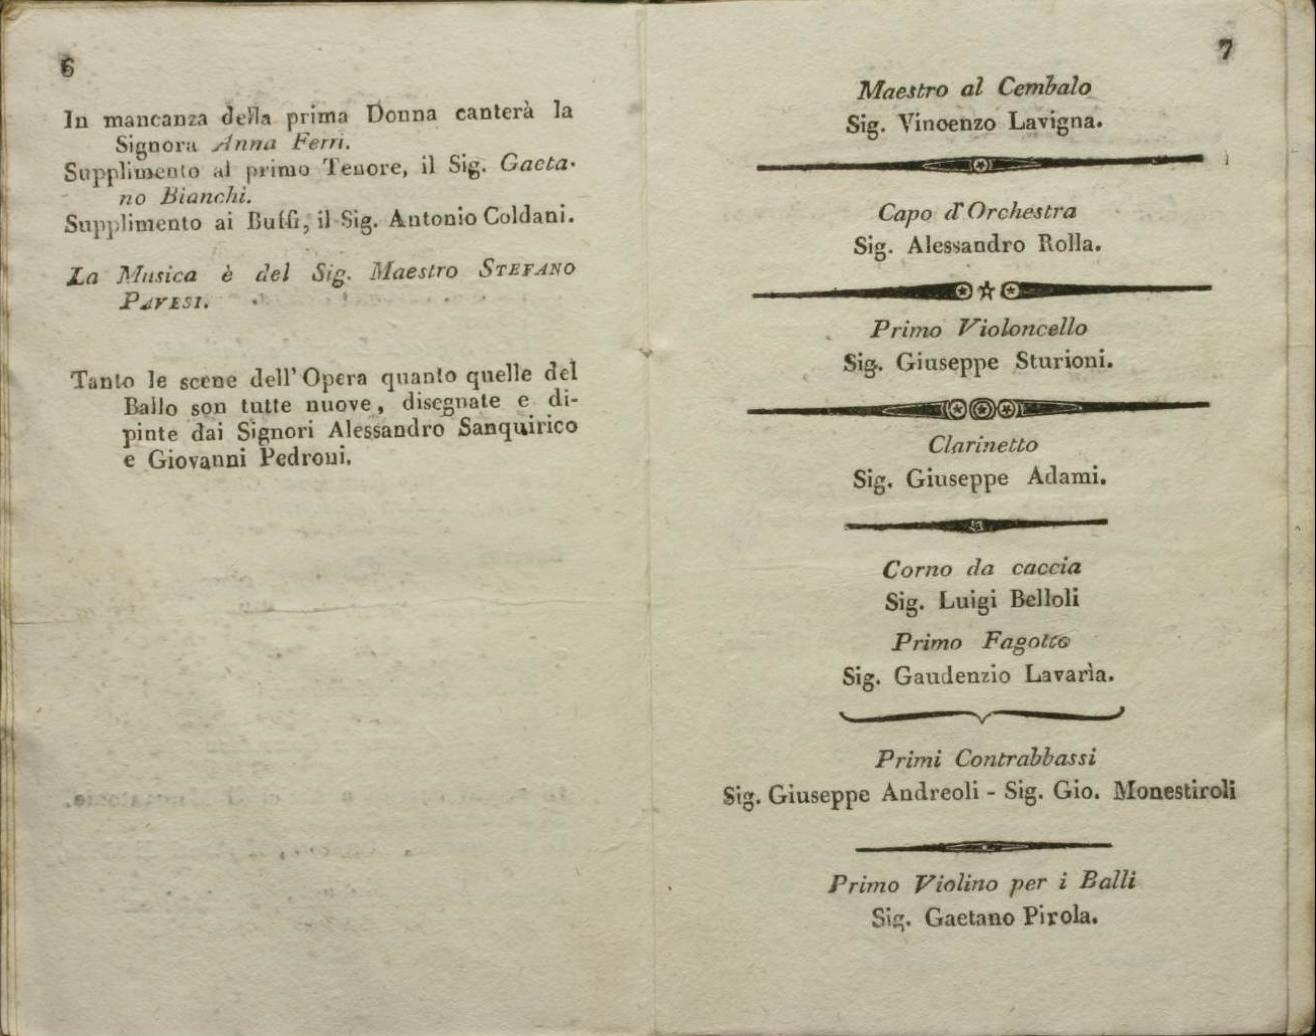 6
In mancanza della prima Donna canterà la
Signora Anna Ferri.
Supplimento al primo Tenore, il Sig. Gaeta-
no Bianchi.
Supplimento ai Buffi, il Sig. Antonio Coldani.
La Musica è del Sig. Maestro STEFANO
PAVESI.
Tanto le scene dell' Opera quanto quelle del
Ballo son tutte nuove, disegnate e di-
pinte dai Signori Alessandro Sanquirico
e Giovanni Pedroni.
7
Maestro al Cembalo
Sig. Vincenzo Lavigna.
Capo d'Orchestra
Sig. Alessandro Rolla.
Primo Violoncello
Sig. Giuseppe Sturioni.
Clarinetto
Sig. Giuseppe Adami.
Corno da caccia
Sig. Luigi Belloli
Primo Fagotto
Sig. Gaudenzio Lavarìa.
Primi Contrabbassi
Sig. Giuseppe Andreoli - Sig. Gio. Monestiroli
Primo Violino per i Balli
Sig. Gaetano Pirola.